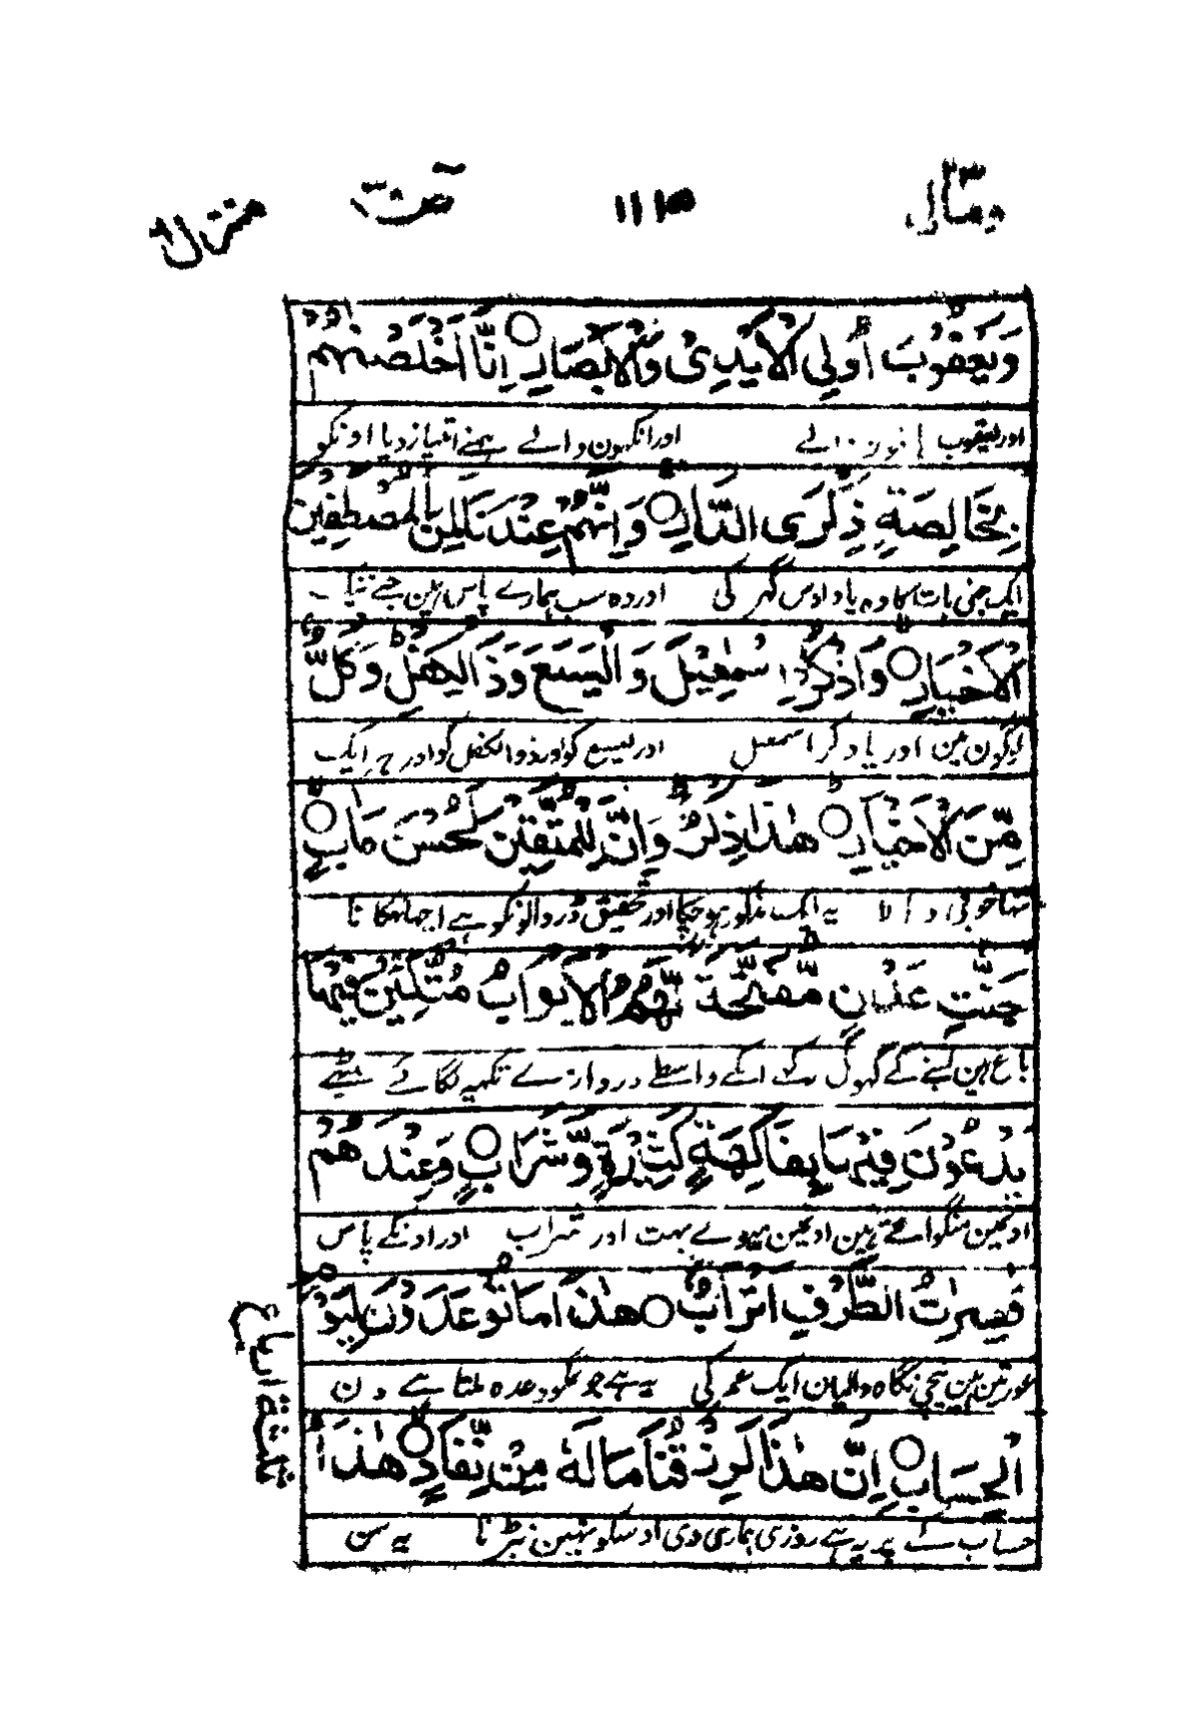 ومالی ۲۳ ۱۱۴۵ صٓ ۳۸ منزل ۶
وَيَعْقُوْبَ اُولِي الْاَيْدِيْ وَالْاَبْصَارِ ○ اِنَّا اَخْلَصْنٰهُمْ
اور یعقوب والے اور انکہون والے ہمنے امتیاز دیا اونکو
بِخَالِصَةٍ ذِكْرَى الدَّارِ ○ وَاِنَّهُمْ عِنْدَنَا لَمِنَ الْمُصْطَفَيْنَ
ایک چنی بات کا وہ یاد اوس گہر کی اور وہ سب ہمارے پاس ہین چنے
الْاَخْيَارِ ○ وَاذْكُرْ اِسْمٰعِيْلَ وَالْيَسَعَ وَذَا الْكِفْلِ ۭ وَكُلٌّ
لوگون مین اور یاد کر اسمعیل اور یسع کو اور ذوالکفل کو اور ہر ایک
مِّنَ الْاَخْيَارِ ○ هٰذَا ذِكْرٌ ۭ وَاِنَّ لِلْمُتَّقِيْنَ لَحُسْنَ مَاٰبٍ ○
تہا خوبی والا یہ ایک مذکور ہو چکا اور تحقیق ڈر والونکو ہے اچہا ٹہکانا
جَنّٰتِ عَدْنٍ مُّفَتَّحَةً لَّهُمُ الْاَبْوَابُ مُتَّكِـِٕيْنَ فِيْهَا
باغ ہین بسنے کے کہول رکہے انکے واسطے دروازے تکیہ لگائے بیٹہے
يَدْعُوْنَ فِيْهَا بِفَاكِهَةٍ كَثِيْرَةٍ وَّشَرَابٍ ○ وَعِنْدَهُمْ
اونمین منگواتے ہین اونمین میوے بہت اور شراب اور اونکے پاس
قٰصِرٰتُ الطَّرْفِ اَتْرَابٌ ○ هٰذَا مَا تُوْعَدُوْنَ لِيَوْمِ
عورتین ہین نیچی نگاہ والیان ایک عمر کی یہ ہے جو تمکو وعدہ ملتا ہے دن
الْحِسَابِ ○ اِنَّ هٰذَا لَرِزْقُنَا مَا لَهٗ مِنْ نَّفَادٍ ○ هٰذَا
حساب کے پر یہ ہے روزی ہماری دی اوسکو نہین نبڑنا یہ سن